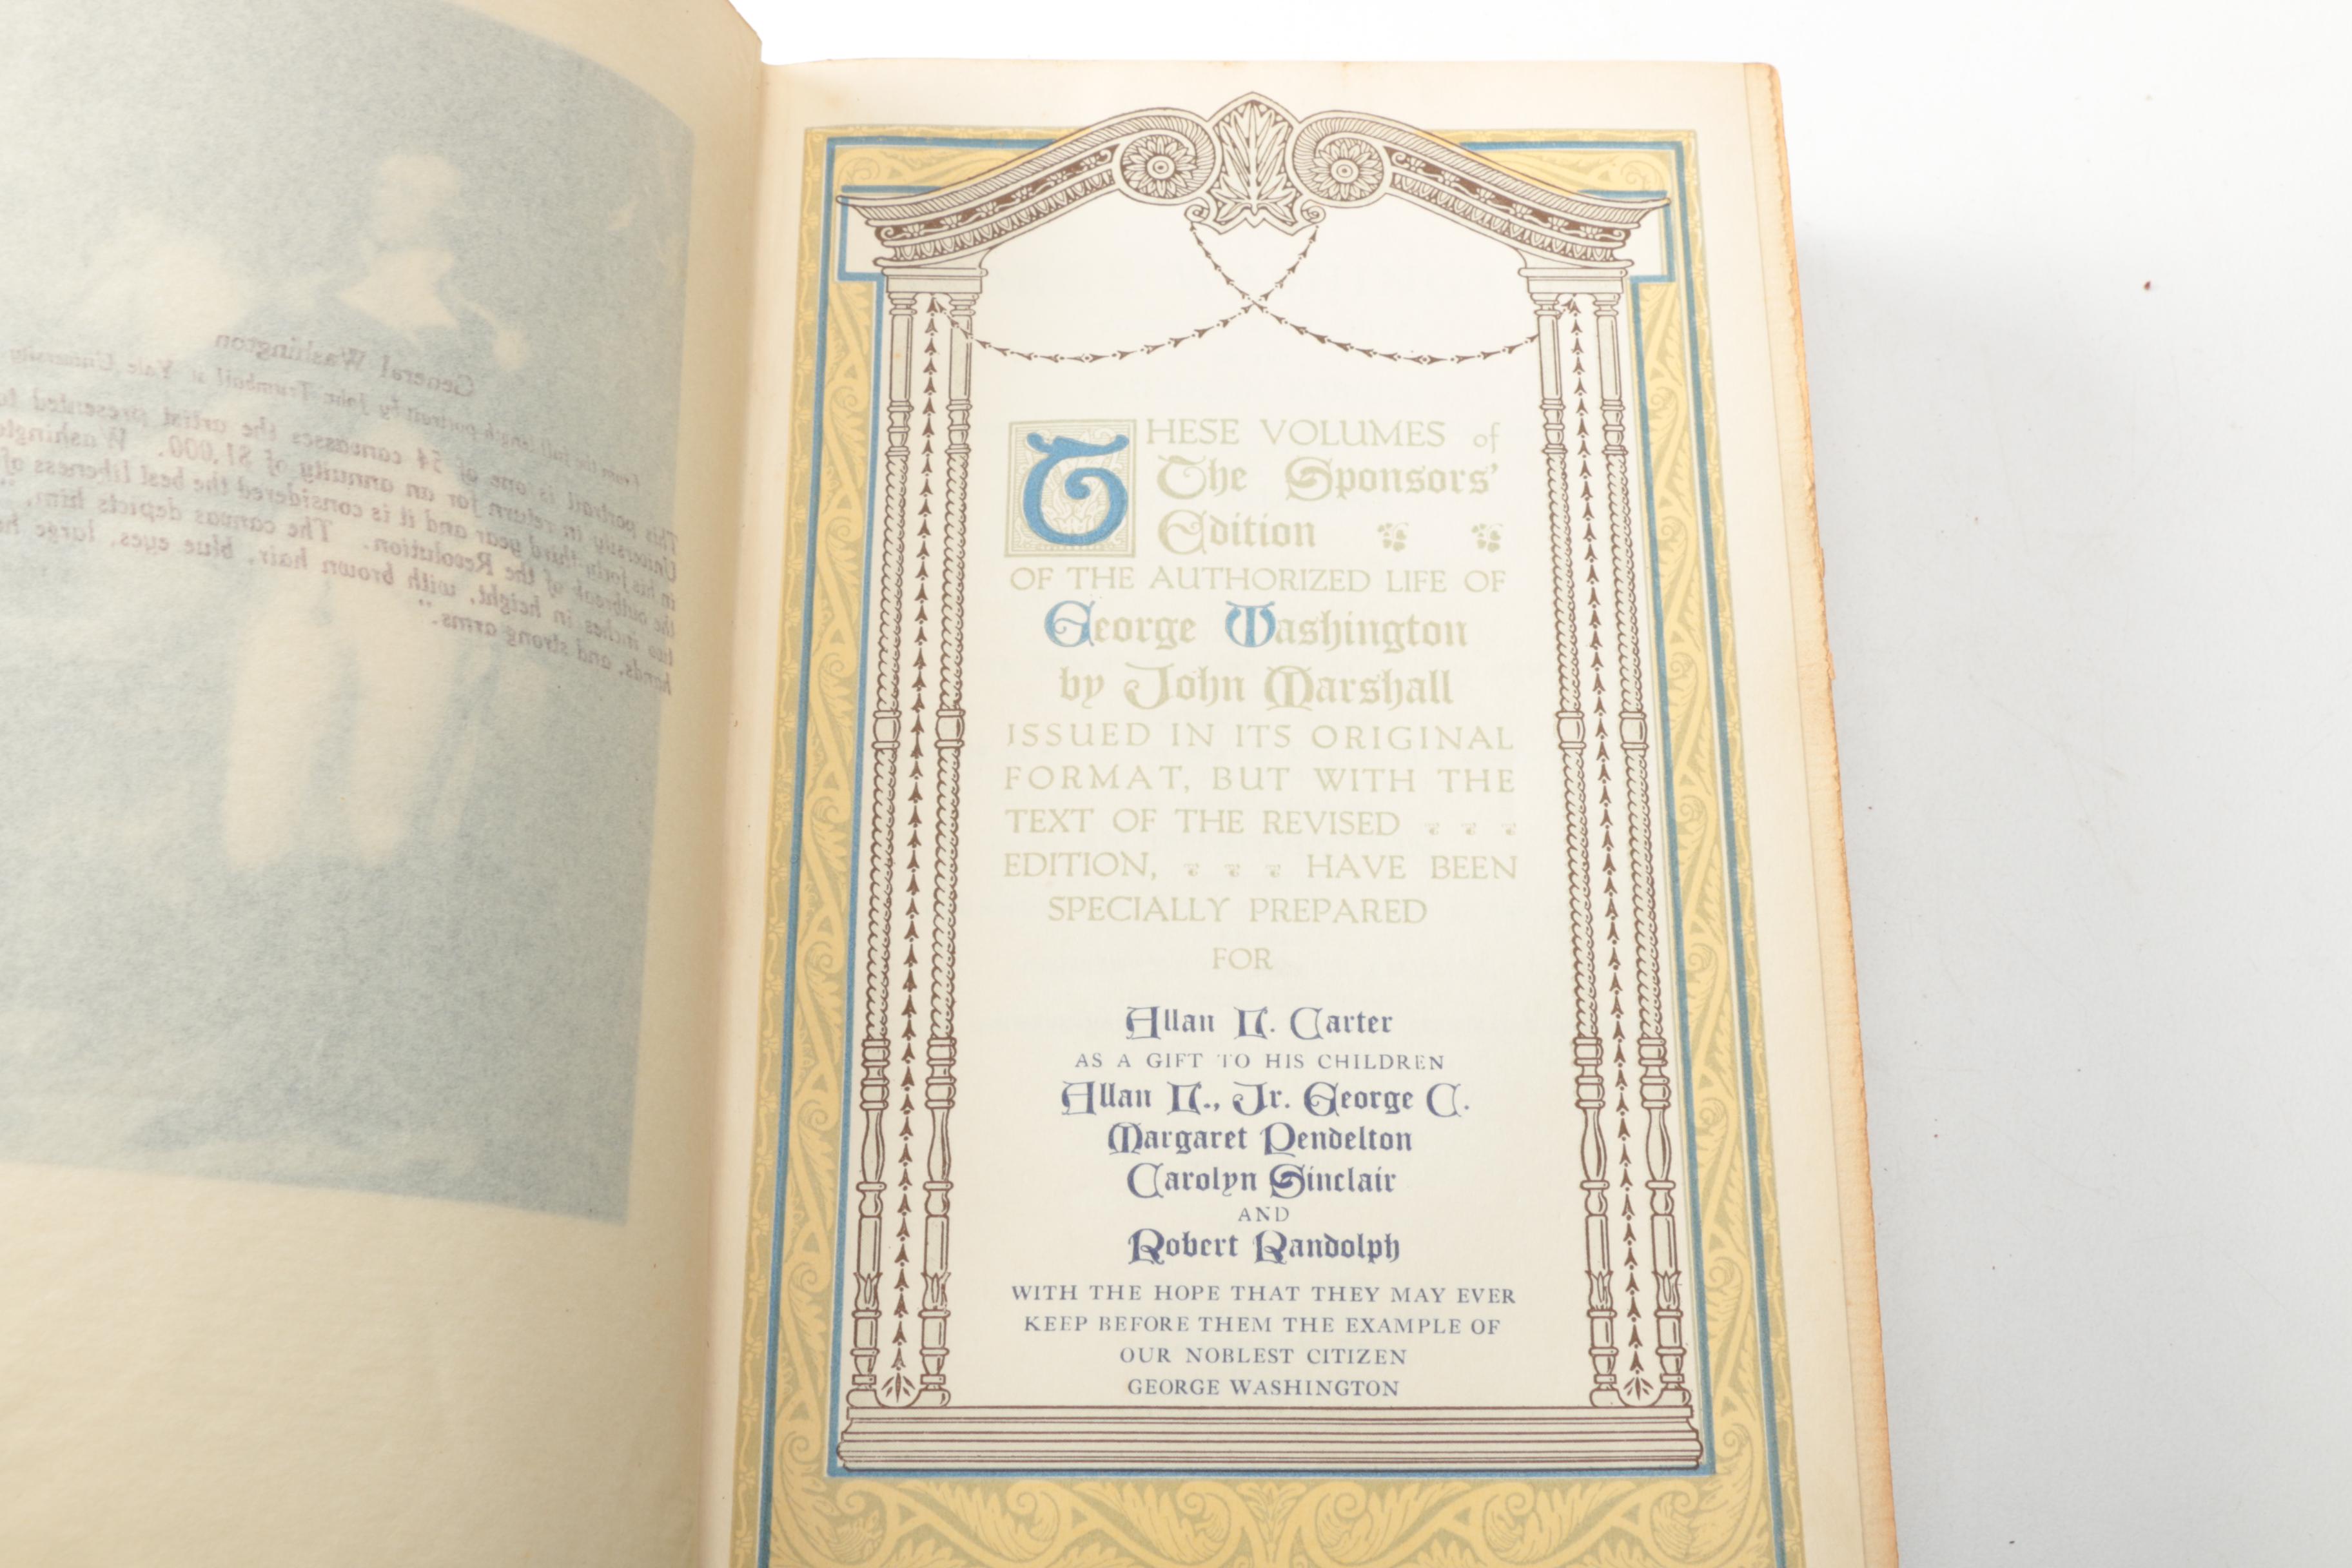 General Washington
From the full length portrait by John Trumbull Yale University
This portrait is one of 54 canvases the artist presented to
University in return for an annuity of $1,000. Washington
in his forty-third year and it is considered the best likeness of
the outbreak of the Revolution. The canvas depicts him,
two inches in height, with brown hair, blue eyes, large
hands, and strong arms."
THESE VOLUMES of
The Sponsors'
Edition
OF THE AUTHORIZED LIFE OF
George Washington
by John Marshall
ISSUED IN ITS ORIGINAL
FORMAT, BUT WITH THE
TEXT OF THE REVISED
EDITION, HAVE BEEN
SPECIALLY PREPARED
FOR
Allan L. Carter
AS A GIFT TO HIS CHILDREN
Allan L., Jr. George C.
Margaret Pendelton
Carolyn Sinclair
AND
Robert Randolph
WITH THE HOPE THAT THEY MAY EVER
KEEP BEFORE THEM THE EXAMPLE OF
OUR NOBLEST CITIZEN
GEORGE WASHINGTON